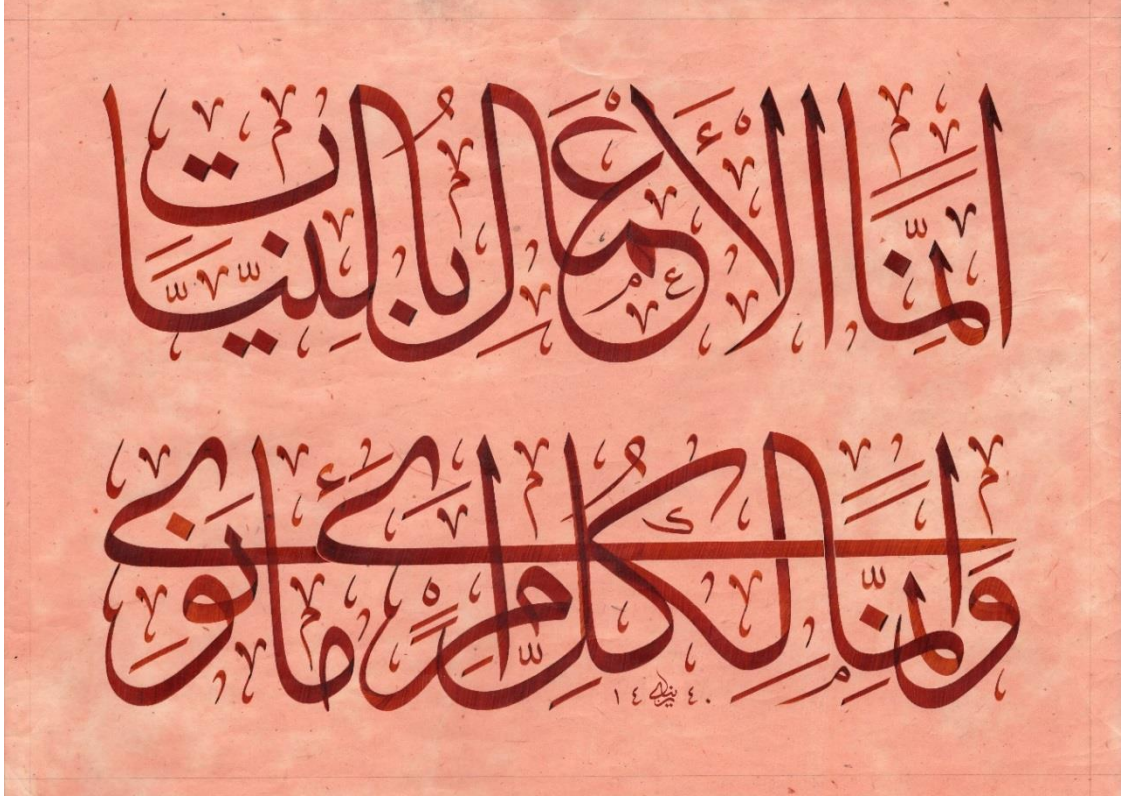 إنَّمَا الْأَعْمَالُ بِالنِّيَّاتِ
وَإِنَّمَا لِكُلِّ امْرِئٍ مَا نَوَى
١٤٤٠